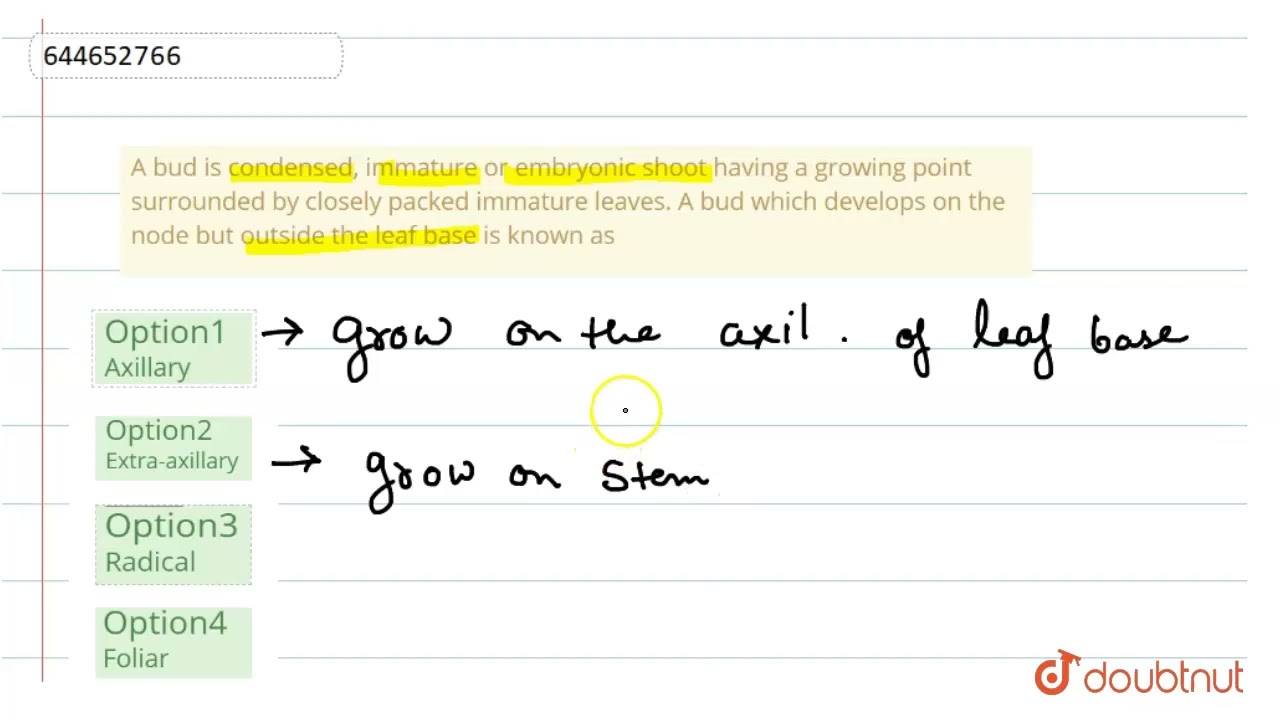 644652766
A bud is condensed, immature or embryonic shoot having a growing point
surrounded by closely packed immature leaves. A bud which develops on the
node but outside the leaf base is known as
Option1 → grow on the axil. of leaf base
Axillary
Option2
Extra-axillary → grow on stem
Option3
Radical
Option4
Foliar
doubtnut